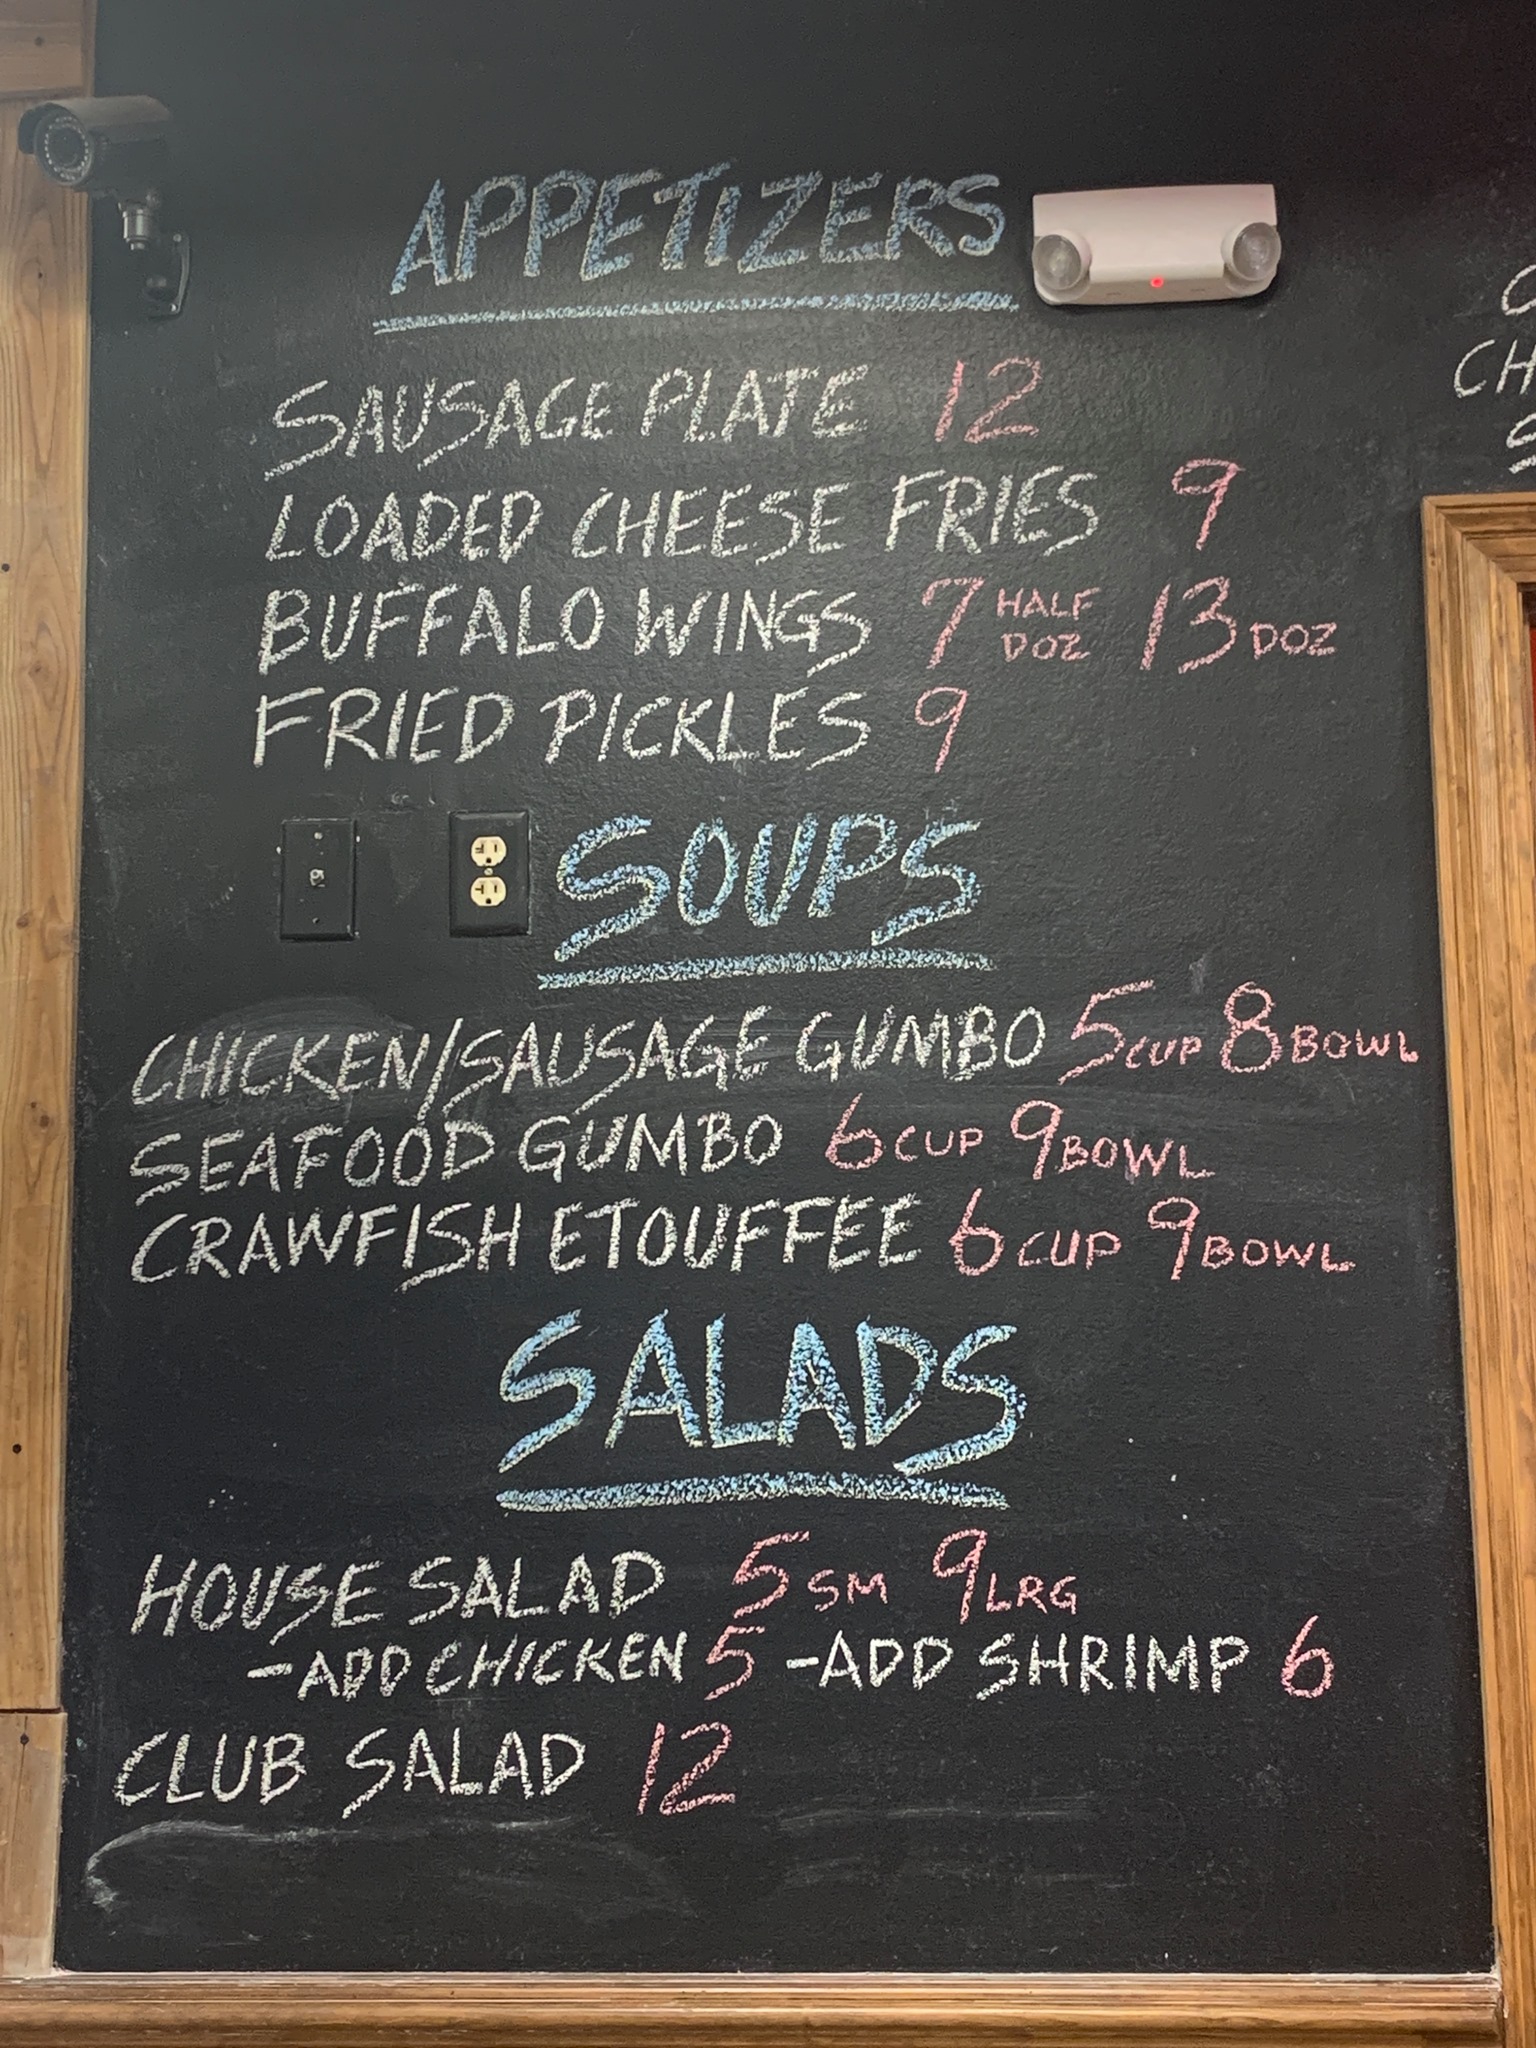 APPETIZERS
SAUSAGE PLATE 12
LOADED CHEESE FRIES 9
BUFFALO WINGS 7 HALF DOZ 13 DOZ
FRIED PICKLES 9
SOUPS
CHICKEN/SAUSAGE GUMBO 5 CUP 8 BOWL
SEAFOOD GUMBO 6 CUP 9 BOWL
CRAWFISH ETOUFFEE 6 CUP 9 BOWL
SALADS
HOUSE SALAD 5 SM 9 LRG
-ADD CHICKEN 5 -ADD SHRIMP 6
CLUB SALAD 12